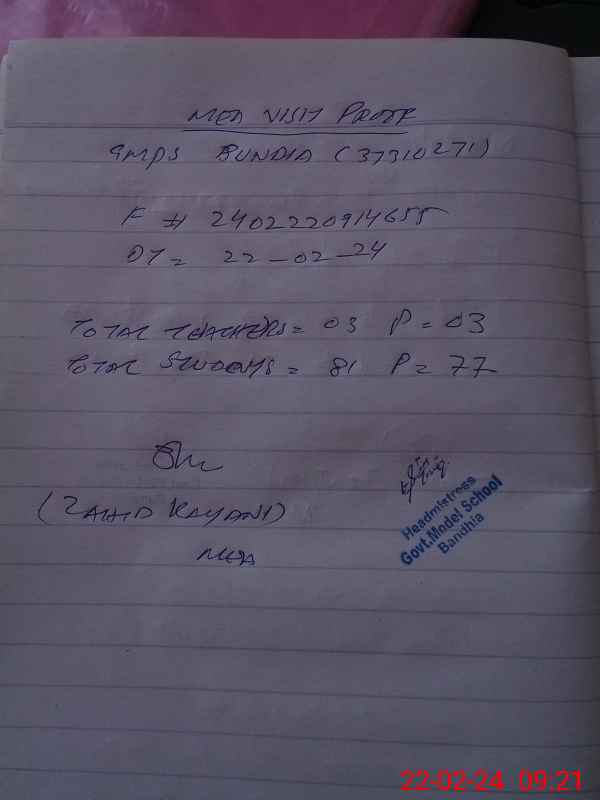 MEA VISIT PROOF
GMPS BUNDIA (37310271)
F # 2402220914655
DT = 22-02-24
TOTAL TEACHERS = 03 P = 03
TOTAL STUDENTS = 81 P = 77
(ZAHID KAYANI)
MEA
Headmistress
Govt.Model School
Bandhia
22-02-24 09:21